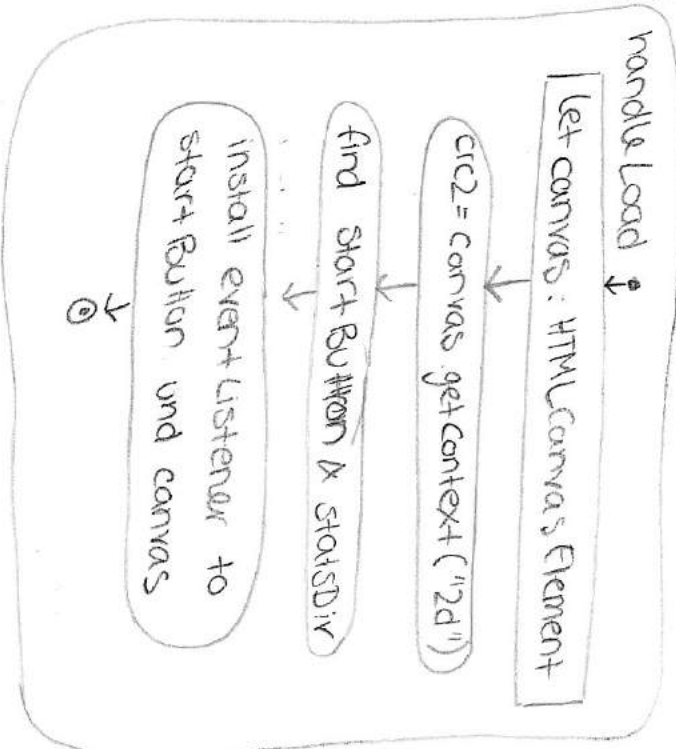 handleLoad
let canvas: HTMLCanvasElement
crc2 = canvas.getContext("2d")
find startButton & statsDiv
install eventListener to
startButton und canvas